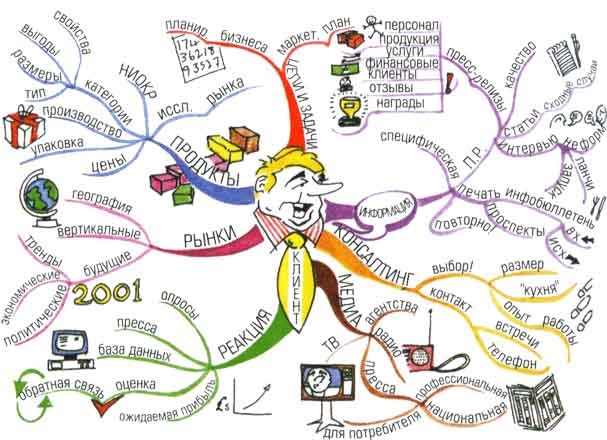 планир
бизнеса
174
36218
93527
маркет. план
ЦЕЛИ И ЗАДАЧИ
персонал
продукция
услуги
финансовые
клиенты
отзывы
награды
пресс-релизы
П.Р.
статьи
качество
сходные случаи
интервью
реформ
ланчи
запуск
специфическая
ИНФОРМАЦИЯ
печать
инфобюллетень
повторно!
проспекты
вх
исх
КОНСАЛТИНГ
выбор!
размер
"кухня"
контакт
опыт работы
встречи
телефон
МЕДИА
агентства
радио
ТВ
пресса
профессиональная
национальная
для потребителя
КЛИЕНТ
РЕАКЦИЯ
опросы
пресса
база данных
оценка
обратная связь
ожидаемая прибыль
£s
РЫНКИ
география
вертикальные
будущие
тренды
экономические
политические
2001
ПРОДУКТЫ
НИОКР
иссл. рынка
категории
свойства
выгоды
размеры
тип
производство
упаковка
цены